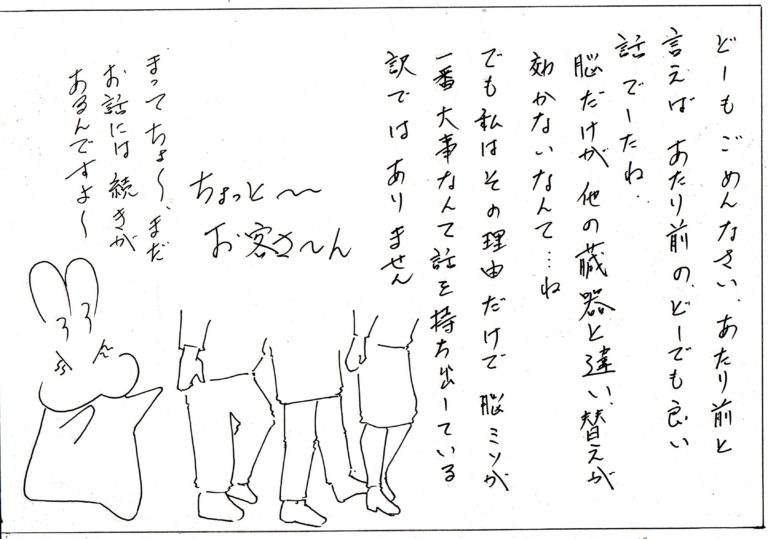 どーも ごめんなさい、あたり前と
言えば あたり前の、どーでも良い
話 でーたね.
脳だけが 他の臓器と違い、替えが
効かないなんて…ね
でも 私はその理由だけで 脳ミソが
一番 大事なんて話を持ち出ーている
訳では ありません
ちょっと〜〜
お客さ〜ん
まってちょ〜、まだ
お話には 続きが
あるんですよ〜